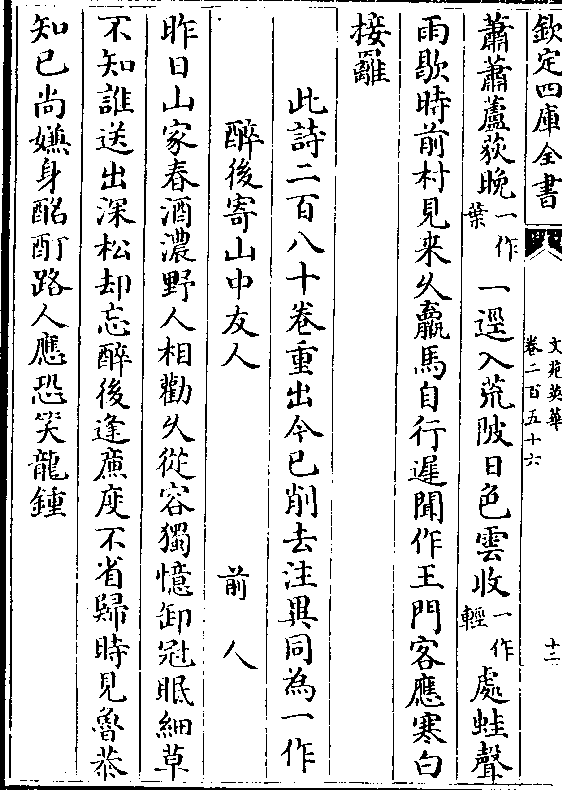 欽定四庫全書
文苑英華
卷二百五十六
十二
蕭蕭蘆荻晚一作葉一逕入荒陂日色雲收一作輕處蛙聲
雨歇時前村見來久羸馬自行遲聞作王門客應寒白
接䍦
此詩二百八十卷重出今已削去注異同為一作
醉後寄山中友人 前人
昨日山家春酒濃野人相勸久從容獨憶卸冠眠細草
不知誰送出深松却忘醉後逢廉度不省歸時見魯恭
知已尚嫌身酩酊路人應恐笑龍鍾